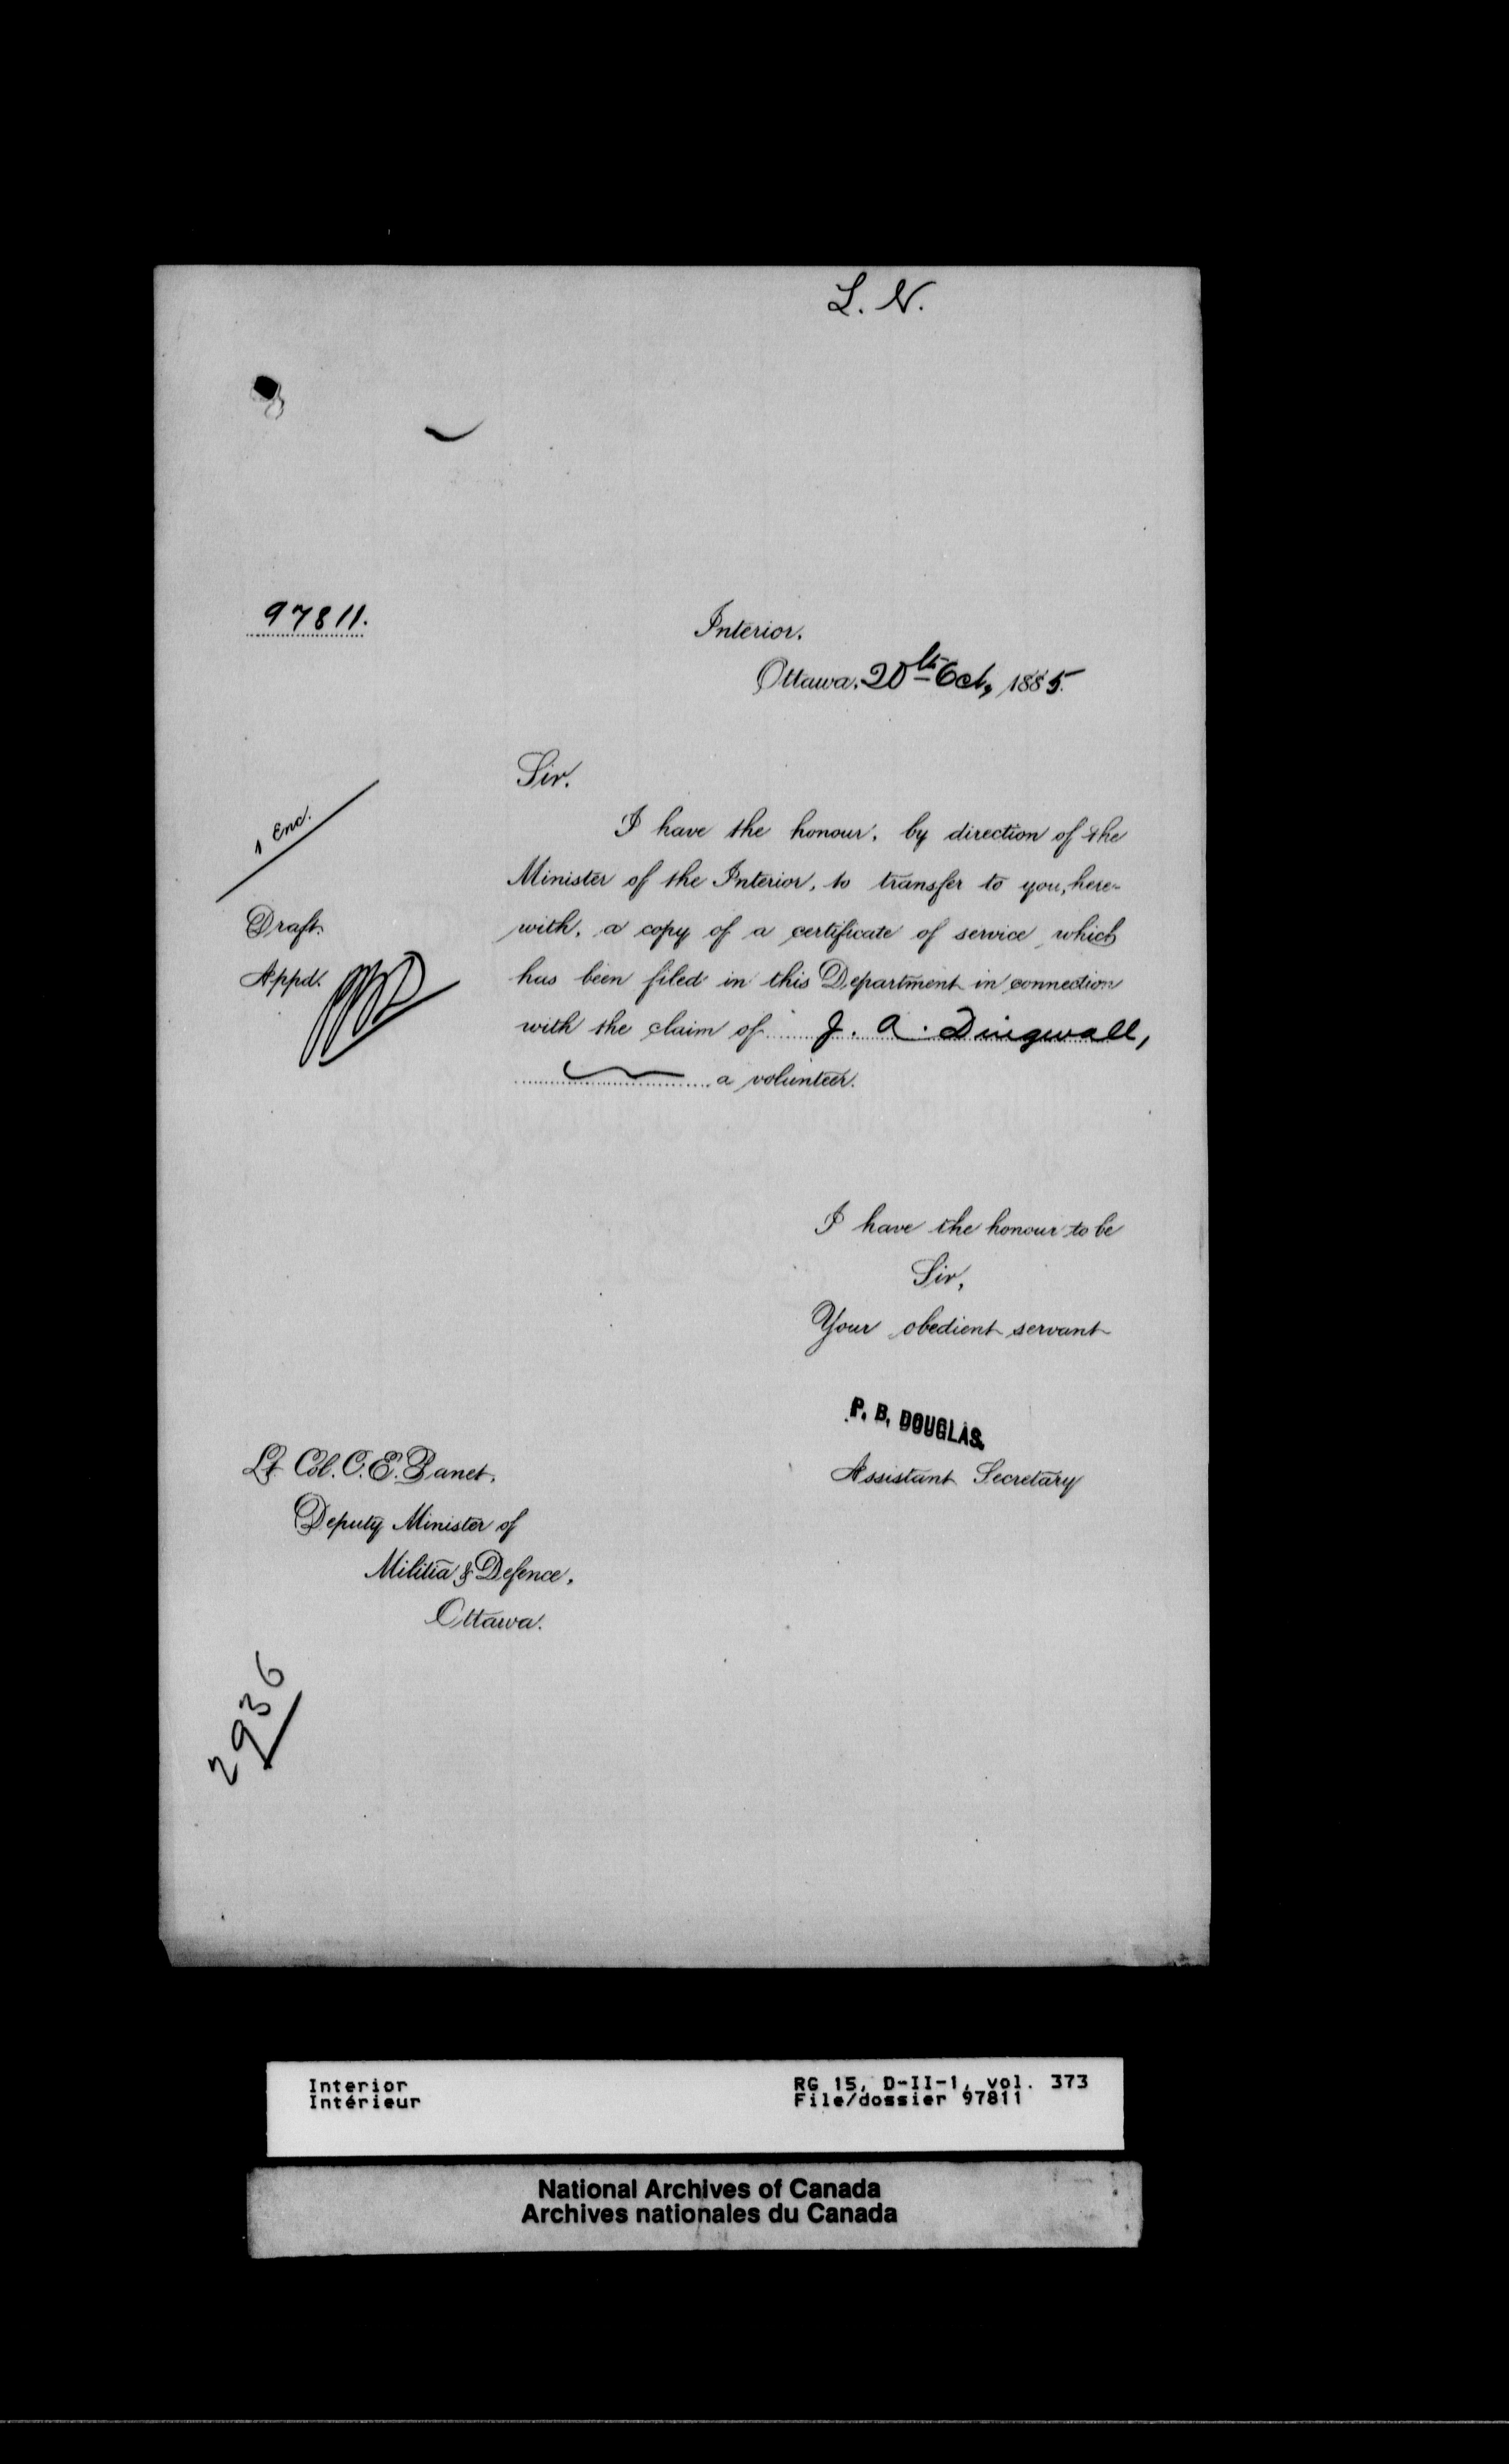 L. N.
97811.
Interior.
Ottawa, 20th Oct, 1885.
Sir.
1 Enc.
I have the honour, by direction of the
Minister of the Interior, to transfer to you, here-
with, a copy of a certificate of service which
has been filed in this Department in connection
with the claim of J. A. Dingwall,
a volunteer.
Draft.
Appd.
I have the honour to be
Sir,
Your obedient servant
P. B. DOUGLAS.
Assistant Secretary
Lt. Col. C. E. Panet,
Deputy Minister of
Militia & Defence,
Ottawa.
2936
Interior
Intérieur
RG 15, D-II-1, vol. 373
File/dossier 97811
National Archives of Canada
Archives nationales du Canada